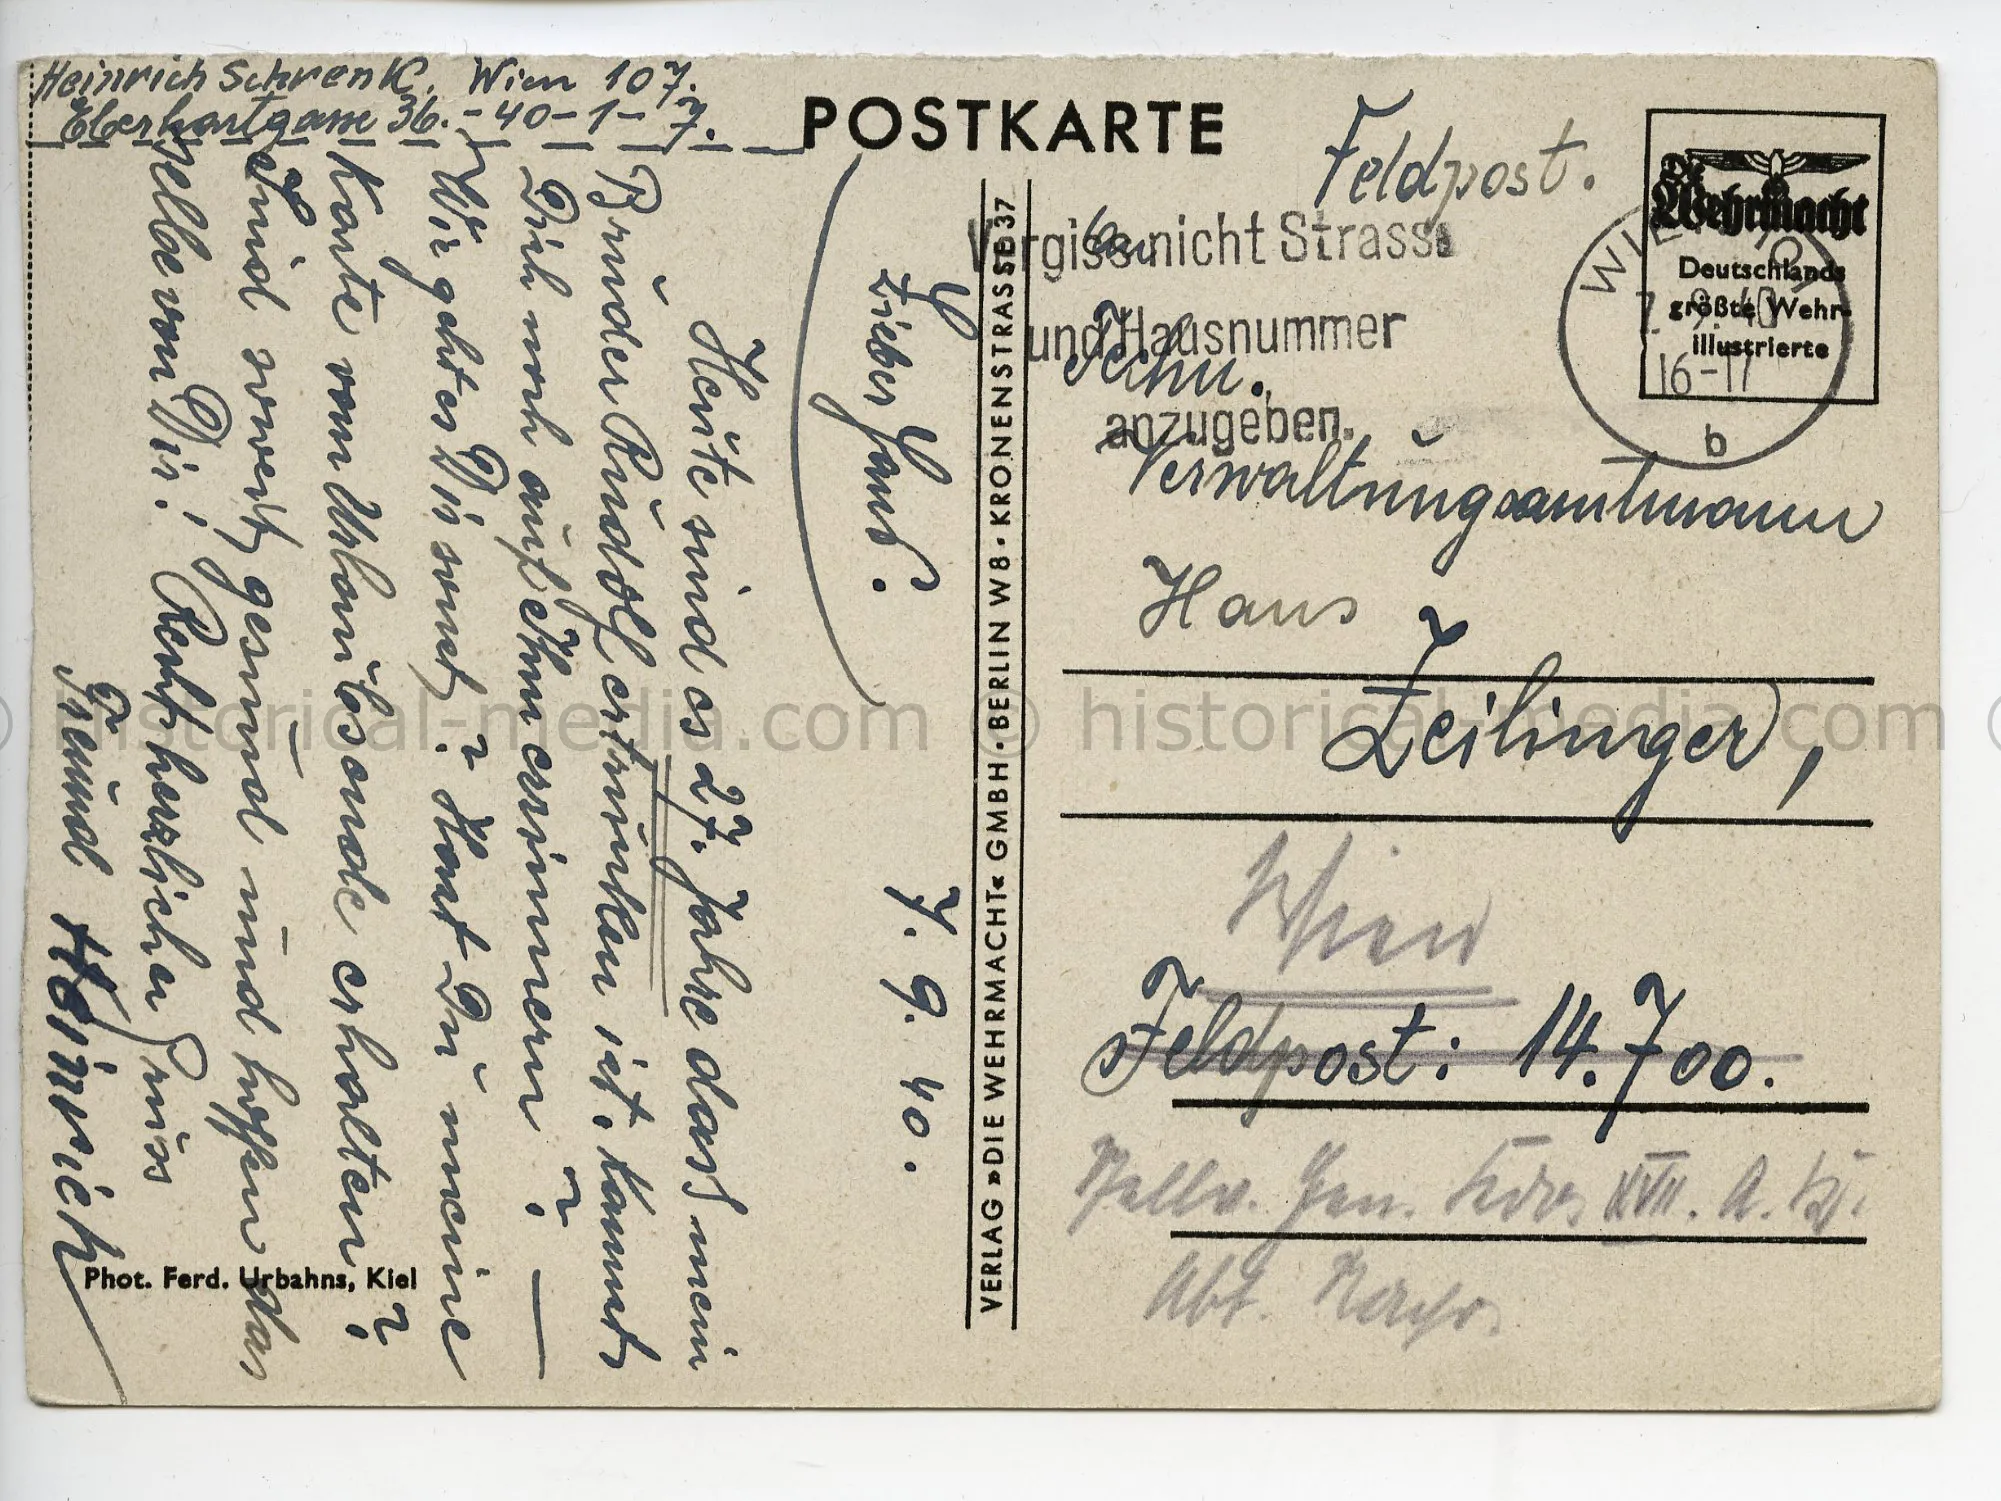 Heinrich Schrenk. Wien 107.
Eberhartgasse 36.-40-1-7.
POSTKARTE
Feldpost.
Die
Wehrmacht
Deutschlands
größte Wehr-
illustrierte
WIEN
7. 9. 40
16-17
b
Vergiss nicht Strasse
und Hausnummer
anzugeben.
An
Techn.
Verwaltungsamtmann
Hans
Zeilinger,
Wien
Feldpost: 14.700.
Gen. Kdos XVII. A. K.
Abt.
VERLAG »DIE WEHRMACHT« GMBH·BERLIN W8·KRONENSTRASSE 37
7. 9. 40.
Lieber Hans!
Heute sind es 27. Jahre dass mein
Bruder Rudolf ertrunken ist. Kannst
Dich noch auf Ihm erinnern? —
Wir gehts Dir sonst? Hast Du meine
Karte vom Urlaub sonde erhalten?
Sind soweit gesund und hoffen das
selbe von Dir! Recht herzlichen Gruss
Freund Heinrich
Phot. Ferd. Urbahns, Kiel
© historical-media.com © historical-media.com ©